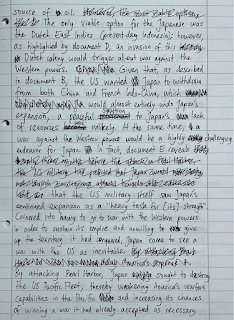 source of oil. The only viable option for the Japanese was
the Dutch East Indies (present-day Indonesia); however,
as highlighted by document D, an invasion of this
Dutch colony would trigger about war against the
Western powers. Given that, as described
in document B, the US wanted Japan to withdraw
from both China and French Indo-China, which
would almost entirely undo Japan's
expansion, a peaceful to Japan's lack
of resources unlikely. At the same time, a
war against the Western powers would be a highly challenging
endeavor for Japan. In fact, document E reveals
the US military
that the US military itself saw Japan's
continued expansion as a "heavy task for [its] strength".
Convinced into having to go to war with the Western powers
in order to sustain its empire and unwilling to give
up the territory it had acquired, Japan came to see a
war with the US as inevitable.
By attacking Pearl Harbor, Japan sought to destroy
the US Pacific Fleet, thereby weakening America's warfare
capabilities in the Pacific and increasing its chances
of winning a war it had already accepted as necessary.